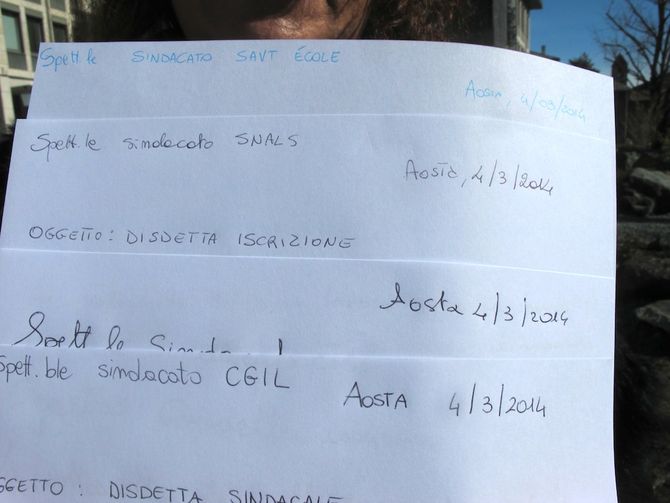 Spett.le SINDACATO SAVT ÉCOLE
Aosta, 4/03/2014
Spett.le sindacato SNALS
Aosta, 4/3/2014
OGGETTO: DISDETTA ISCRIZIONE
Aosta 4/3/2014
Spett le
Spett.ble sindacato CGIL
AOSTA 4/3/2014
OGGETTO: DISDETTA SINDACALE